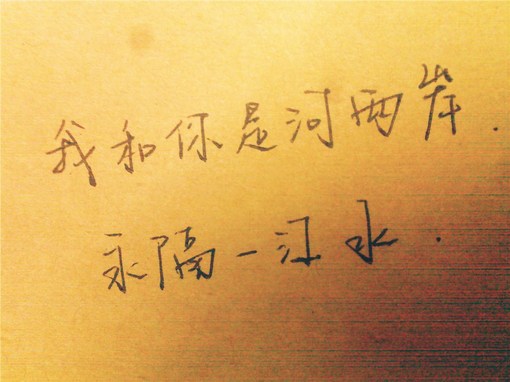 我和你是河两岸.
永隔一江水.